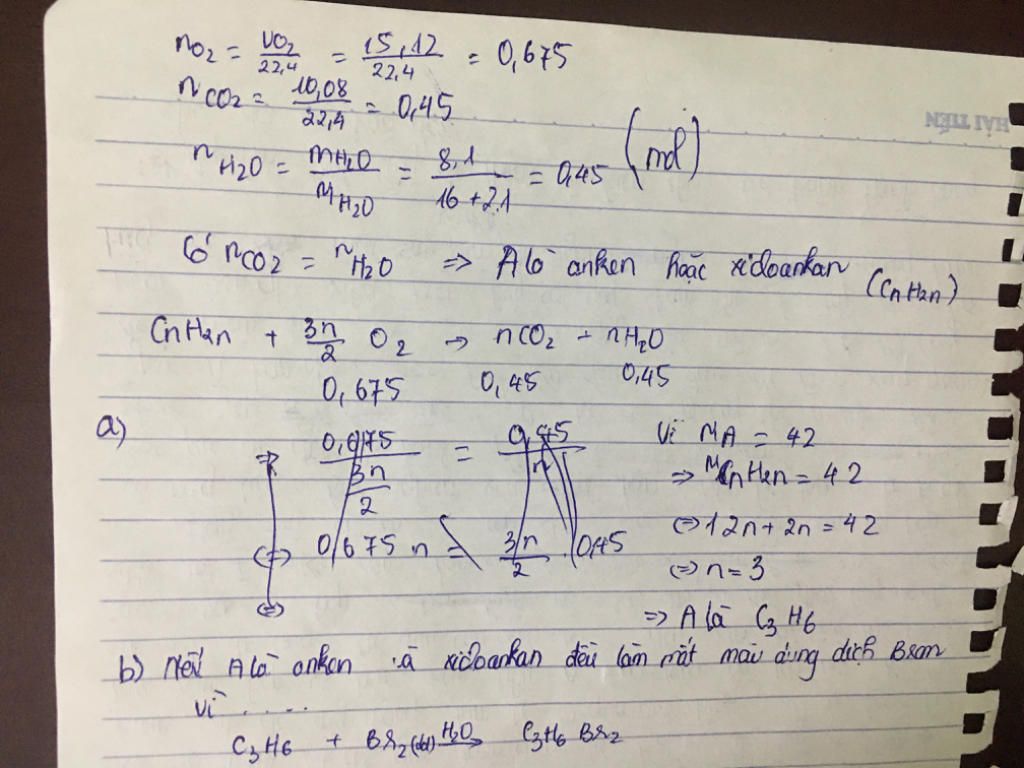 nO2 = VO2/22,4 = 15,12/22,4 = 0,675
nCO2 = 10,08/22,4 = 0,45
nH2O = mH2O/MH2O = 8,1/16+2.1 = 0,45 (mol)
HẢI TIẾN
Có nCO2 = nH2O => A là anken hoặc xicloankan (CnH2n)
CnH2n + 3n/2 O2 -> nCO2 + nH2O
0,675 0,45 0,45
a)
=> 0,675/3n/2 = 0,45/n
<=> 0,675 n = 3n/2 . 0,45
<=>
Vì MA = 42
=> MCnH2n = 42
<=> 12n + 2n = 42
<=> n = 3
=> A là C3H6
b) Nếu A là anken và xicloankan đều làm mất màu dung dịch Brom
vì .....
C3H6 + Br2 (dd) H2O-> C3H6Br2